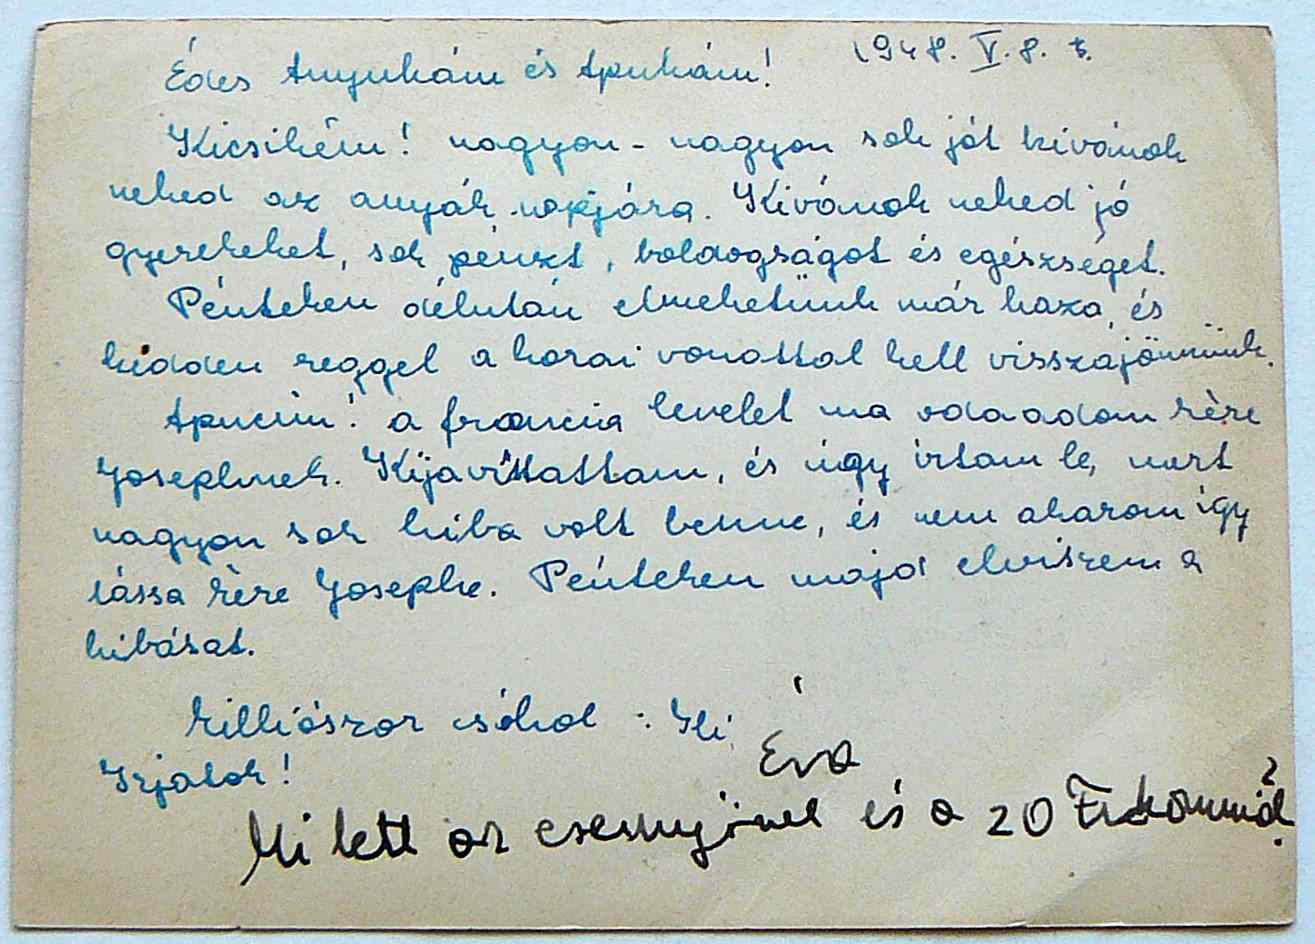 1948. V. 8.
Édes Anyukám és Apukám!
Kicsikém! nagyon - nagyon sok jót kivánok
neked az anyák napjára. Kivánok neked jó
gyerekeket, sok pénzt, boldogságot és egészséget.
Pénteken délután elmehetünk már haza, és
kedden reggel a korai vonattal kell visszajönnünk.
Apucim! a francia levelet ma odaadom Père
Josephnek. Kijavíttattam, és úgy irtam le, mert
nagyon sok hiba volt benne, és nem akarom igy
lássa Père Josephe. Pénteken majd elviszem a
hibásat.
Milliószor csókol : Ili
Éva
Irjatok!
Mi lett az esernyőmmel és a 20 Ft